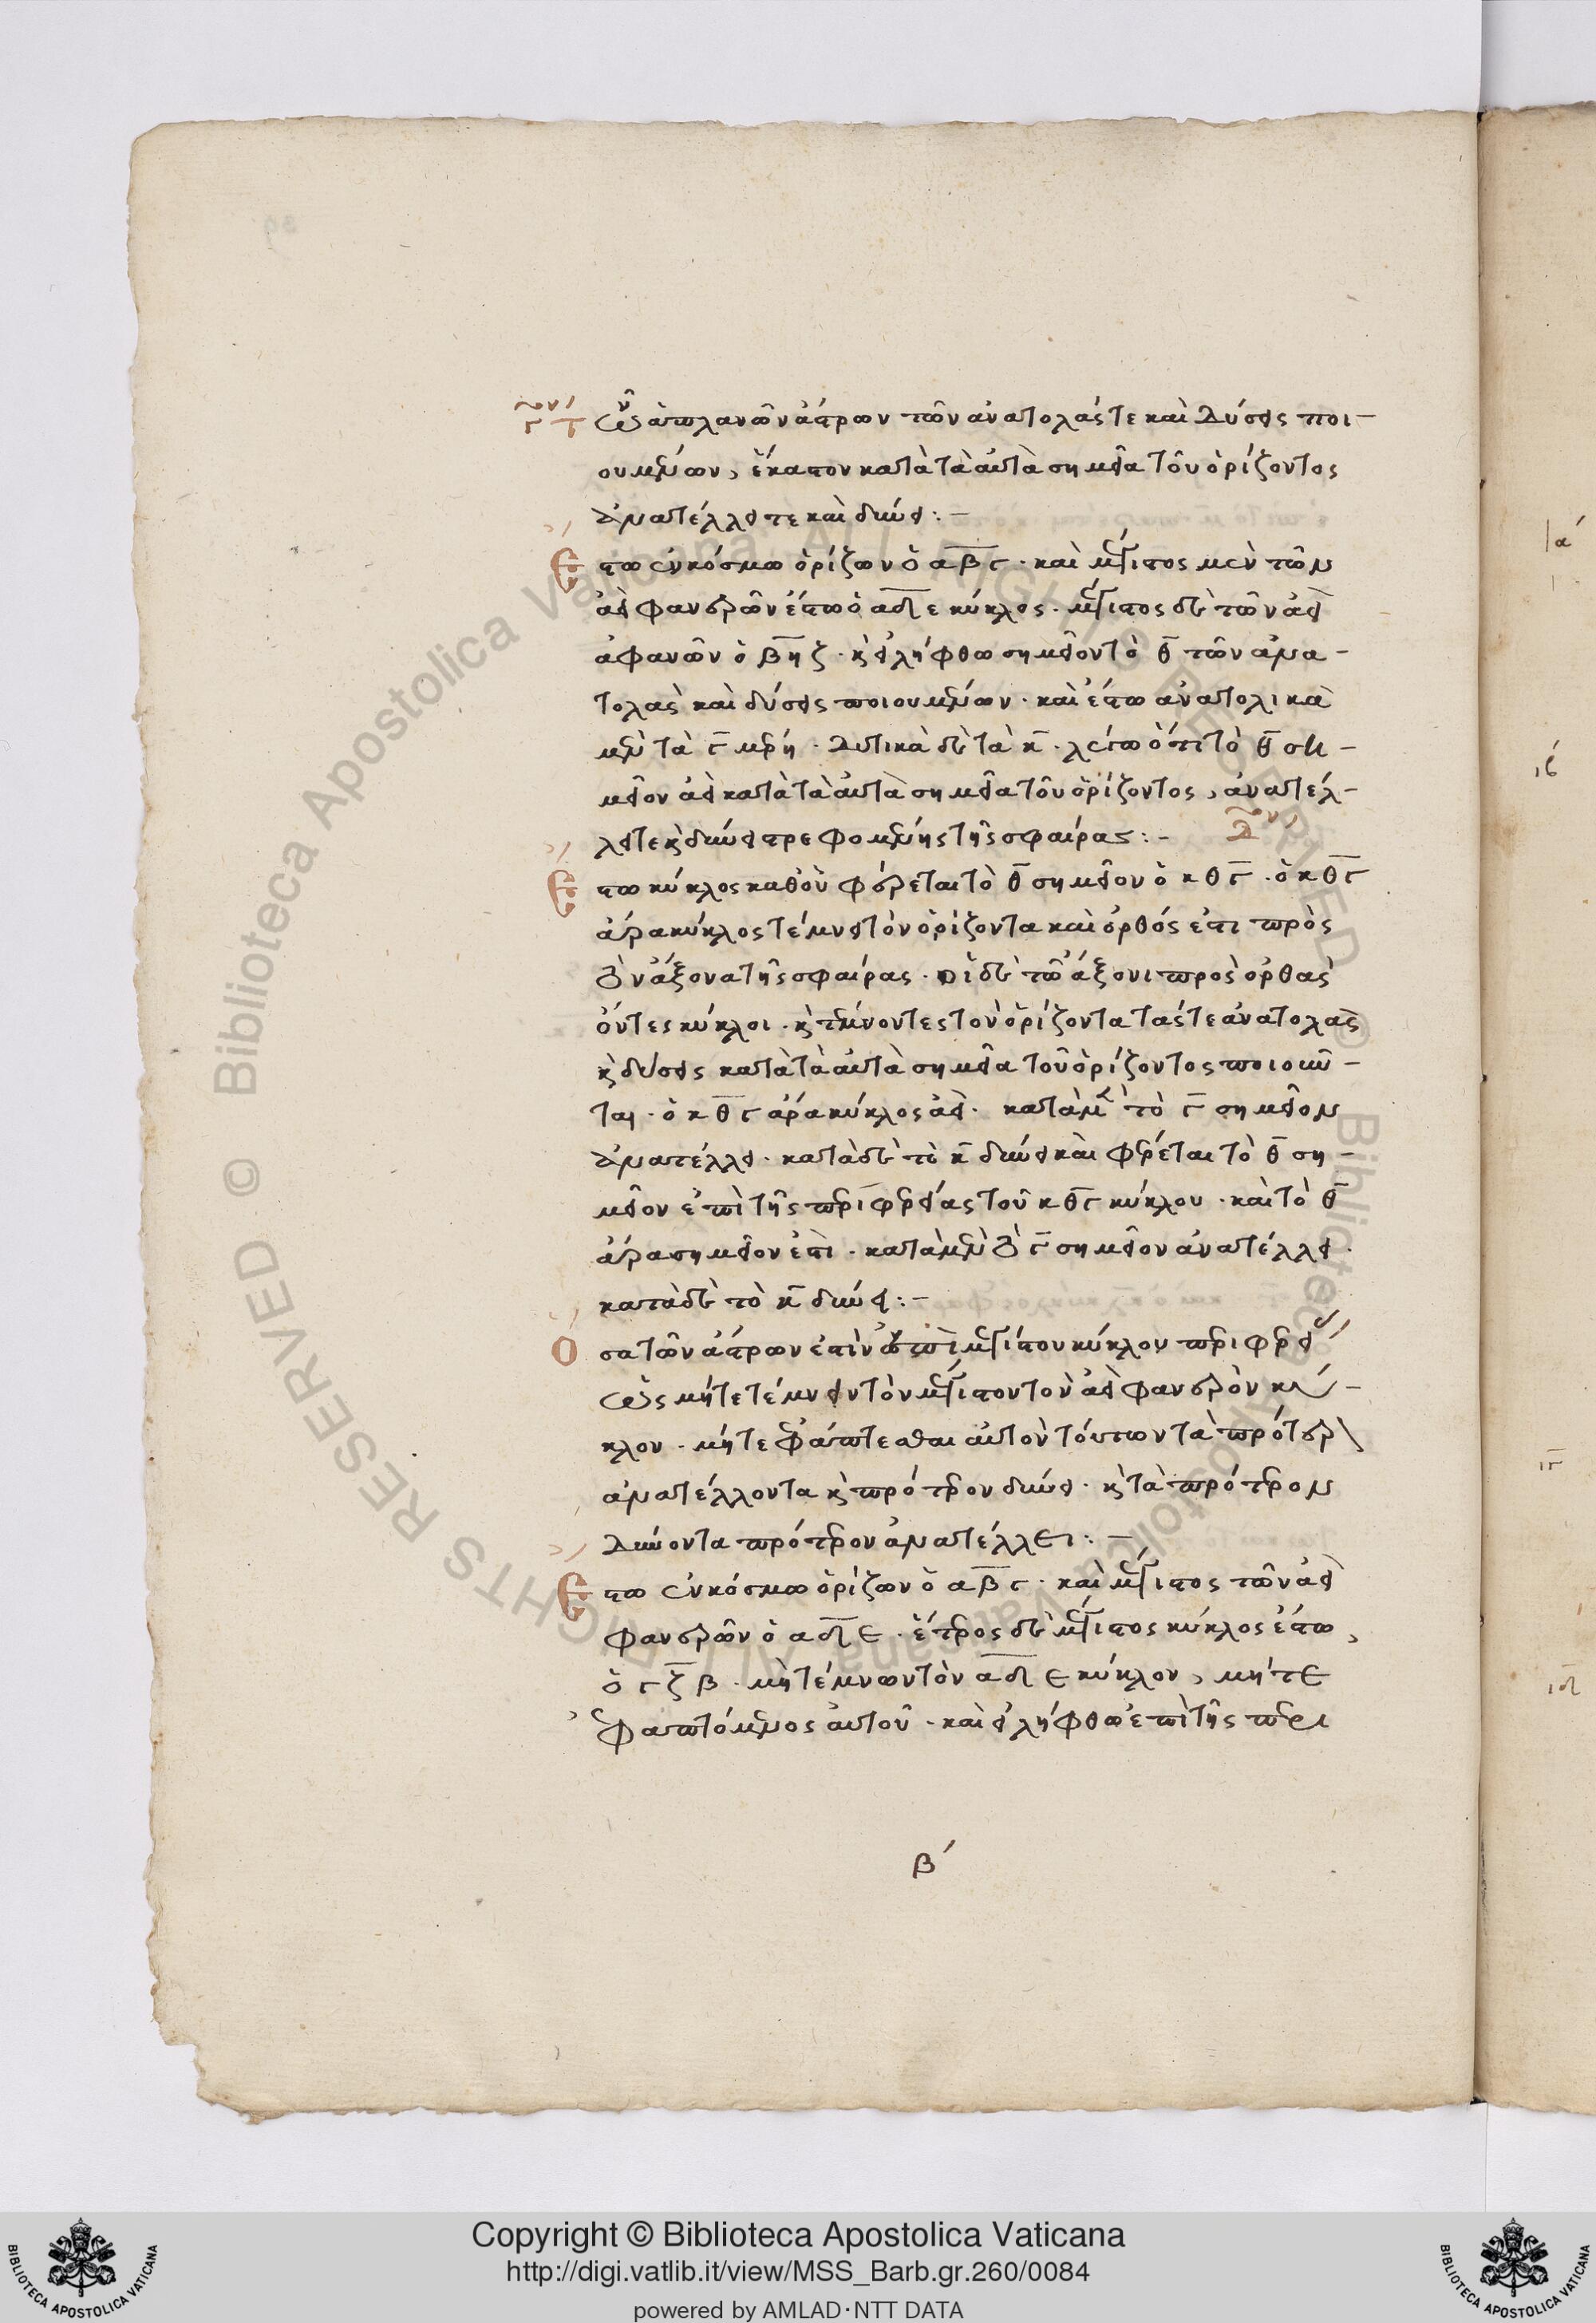 γον Τῶν ἀπλανῶν ἄστρων τῶν ἀνατολάς τε καὶ δύσεις ποι-
ουμένων, ἕκαστον κατὰ τὰ αὐτὰ σημεῖα τοῦ ὁρίζοντος
ἀνατέλλει τε καὶ δύνει:-
Ἔστω ἐν κόσμω ὁρίζων ὁ αβγ· καὶ μέγιστος μὲν τῶν
ἀεὶ φανερῶν ἔστω ὁ αδε κύκλος. μέγιστος δὲ τῶν ἀεὶ
ἀφανῶν ὁ βηζ. κὶ εἰλήφθω σημεῖον τὸ θ τῶν ἀνα-
τολὰς καὶ δύσεις ποιουμένων. καὶ ἔστω ἀνατολικὰ
μὲν τὰ γ μέρη. δυτικὰ δὲ τὰ κ. λέγω ὅτι τὸ θ ση-
μεῖον ἀεὶ κατὰ τὰ αὐτὰ σημεῖα τοῦ ὁρίζοντος, ἀνατέλ-
λει τε κὶ δύνει στρεφομένης τῆς σφαίρας:- δον
Ἔστω κύκλος καθ οὗ φέρεται τὸ θ σημεῖον ὁ κθγ. ὁ κθγ
ἄρα κύκλος τέμνει τὸν ὁρίζοντα καὶ ὀρθός ἐστι πρὸς
τὸν ἄξονα τῆς σφαίρας. οἱ δὲ τῶ ἄξονι πρὸς ὀρθὰς
ὄντες κύκλοι. κὶ τέμνοντες τὸν ὁρίζοντα τάς τε ἀνατολὰς
κὶ δύσεις κατὰ τὰ αὐτὰ σημεῖα τοῦ ὁρίζοντος ποιοῦν-
ται. ὁ κθγ ἄρα κύκλος ἀεὶ. κατὰ μὲν τὸ γ σημεῖον
ἀνατέλλει. κατὰ δὲ τὸ κ δύνει καὶ φέρεται τὸ θ ση-
μεῖον ἐπὶ τῆς περιφερείας τοῦ κθγ κύκλου. καὶ τὸ θ
ἄρα σημεῖον ἐστὶ. κατὰ μὲν τὸ γ σημεῖον ἀνατέλλει.
κατὰ δὲ τὸ κ δύνει:-
Ὅσα τῶν ἄστρων ἐστὶν ἐπὶ μεγίστου κύκλου περιφερεί
ας μήτε τέμνειν τὸν μέγιστον τὸν ἀεὶ φανερὸν κύ-
κλον. μήτε ἐφάπτεσθαι αὐτὸν τούτων τὰ πρότερ\
ἀνατέλλοντα κὶ πρότερον δύνει. κὶ τὰ πρότερον
δύνοντα πρότερον ἀνατέλλει:-
Ἔστω ἐν κόσμω ὁρίζων ὁ αβγ. καὶ μέγιστος τῶν ἀεὶ
φανερῶν ὁ αδε. ἕτερος δὲ μέγιστος κύκλος ἔστω,
ὁ γζβ. μὴ τέμνων τὸν αδε κύκλον, μήτε
ἐφαπτόμενος αὐτοῦ. καὶ εἰλήφθω ἐπὶ τῆς περι
β´
ια´
ιβ´
ιγ
ιδ
Copyright © Biblioteca Apostolica Vaticana
http://digi.vatlib.it/view/MSS_Barb.gr.260/0084
powered by AMLAD·NTT DATA
BIBLIOTECA APOSTOLICA VATICANA
BIBLIOTECA APOSTOLICA VATICANA